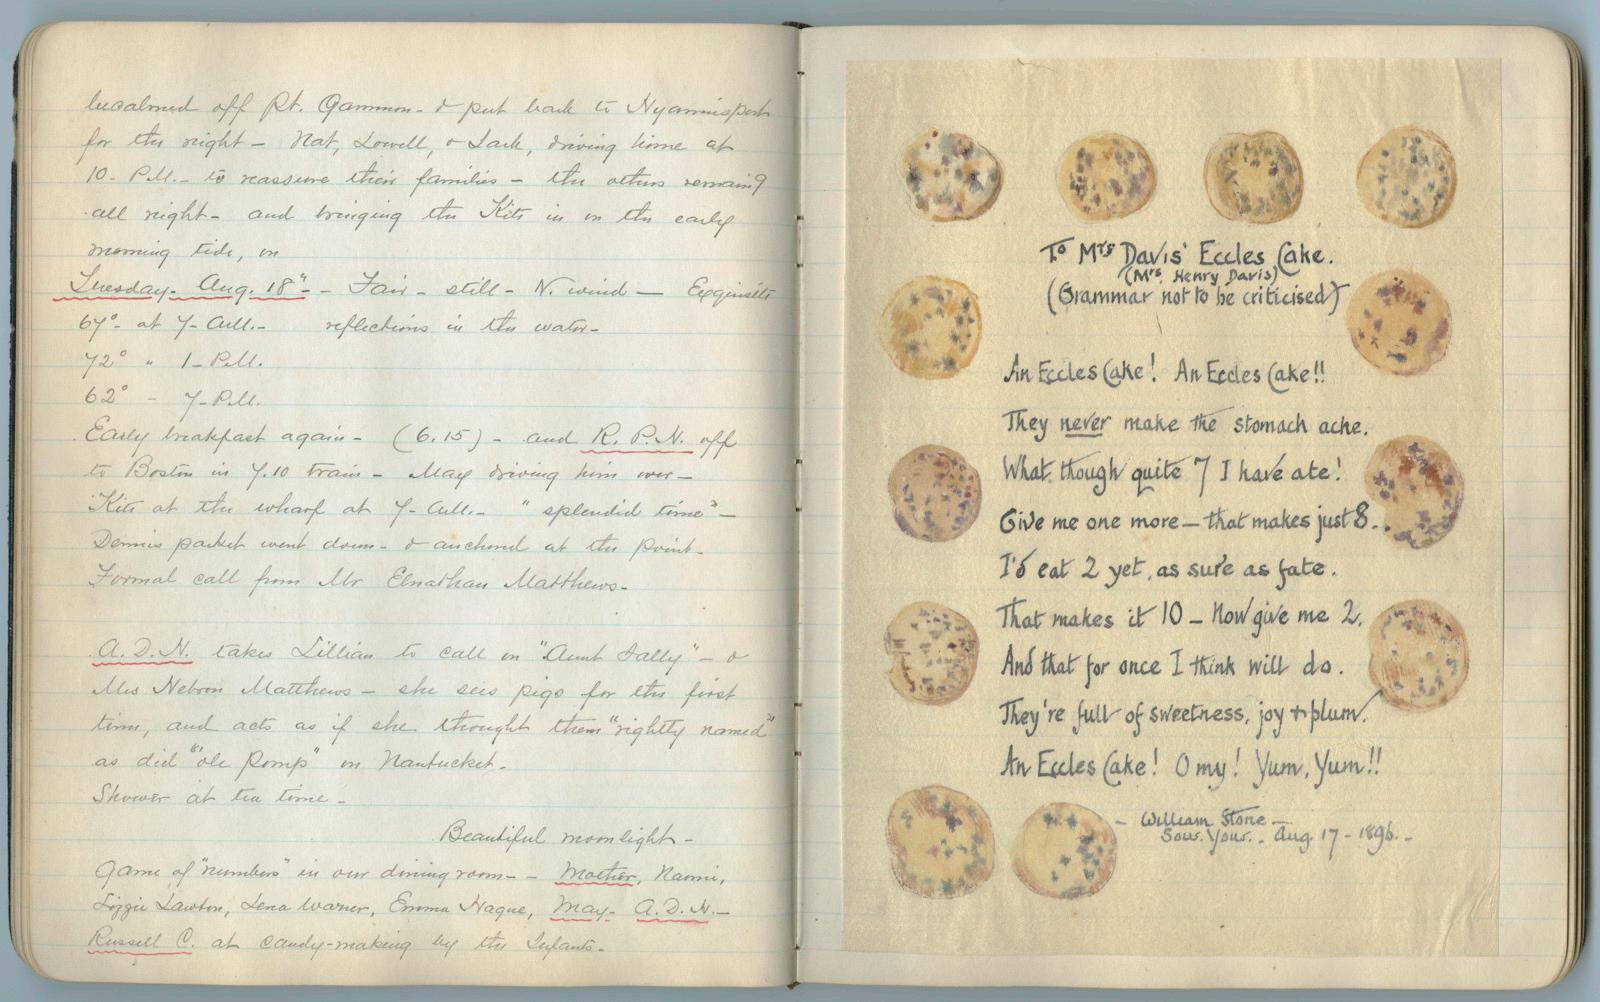 becalmed off Pt. Gammon - & put back to Hyannisport
for the night - Nat, Lowell, & Jack, driving home at
10- P.M. - to reassure their families - the others remaing
all night - and bringing the Kits in on the early
morning tide, on
Tuesday - Aug. 18" - Fair - still - N. wind - Exquisite
67° - at 7- A.M. - reflections in the water -
72° " 1- P.M.
62° - 7- P.M.
Early breakfast again - (6.15) - and R. P. N. off
to Boston in 7.10 train - May driving him over -
Kits at the wharf at 7- A.M. - "splendid time" -
Dennis packet went down - & anchored at the Point -
Formal call from Mr Elnathan Matthews -
A. D. N. takes Lillian to call on "Aunt Sally" - &
Mrs Nelson Matthews - she sees pigs for the first
time, and acts as if she thought them "rightly named"
as did "ole Pomp" on Nantucket -
Shower at tea time -
Beautiful moonlight -
Game of "numbers" in our diningroom - - Mother, Naomi,
Lizzie Lawton, Lena Warner, Emma Hague, May - A. D. N. -
Russell C. at candy-making by the Infants -
To Mrs Davis' Eccles Cake.
(Mrs. Henry Davis)
(Grammar not to be criticised)
An Eccles Cake! An Eccles Cake!!
They never make the stomach ache.
What though quite 7 I have ate!
Give me one more - that makes just 8.
I'd eat 2 yet, as sure as fate.
That makes it 10 - Now give me 2,
And that for once I think will do.
They're full of sweetness, joy + plum.
An Eccles Cake! O my! Yum, Yum!!
- William Stone -
Sou. Yar. - Aug 17 - 1896. -